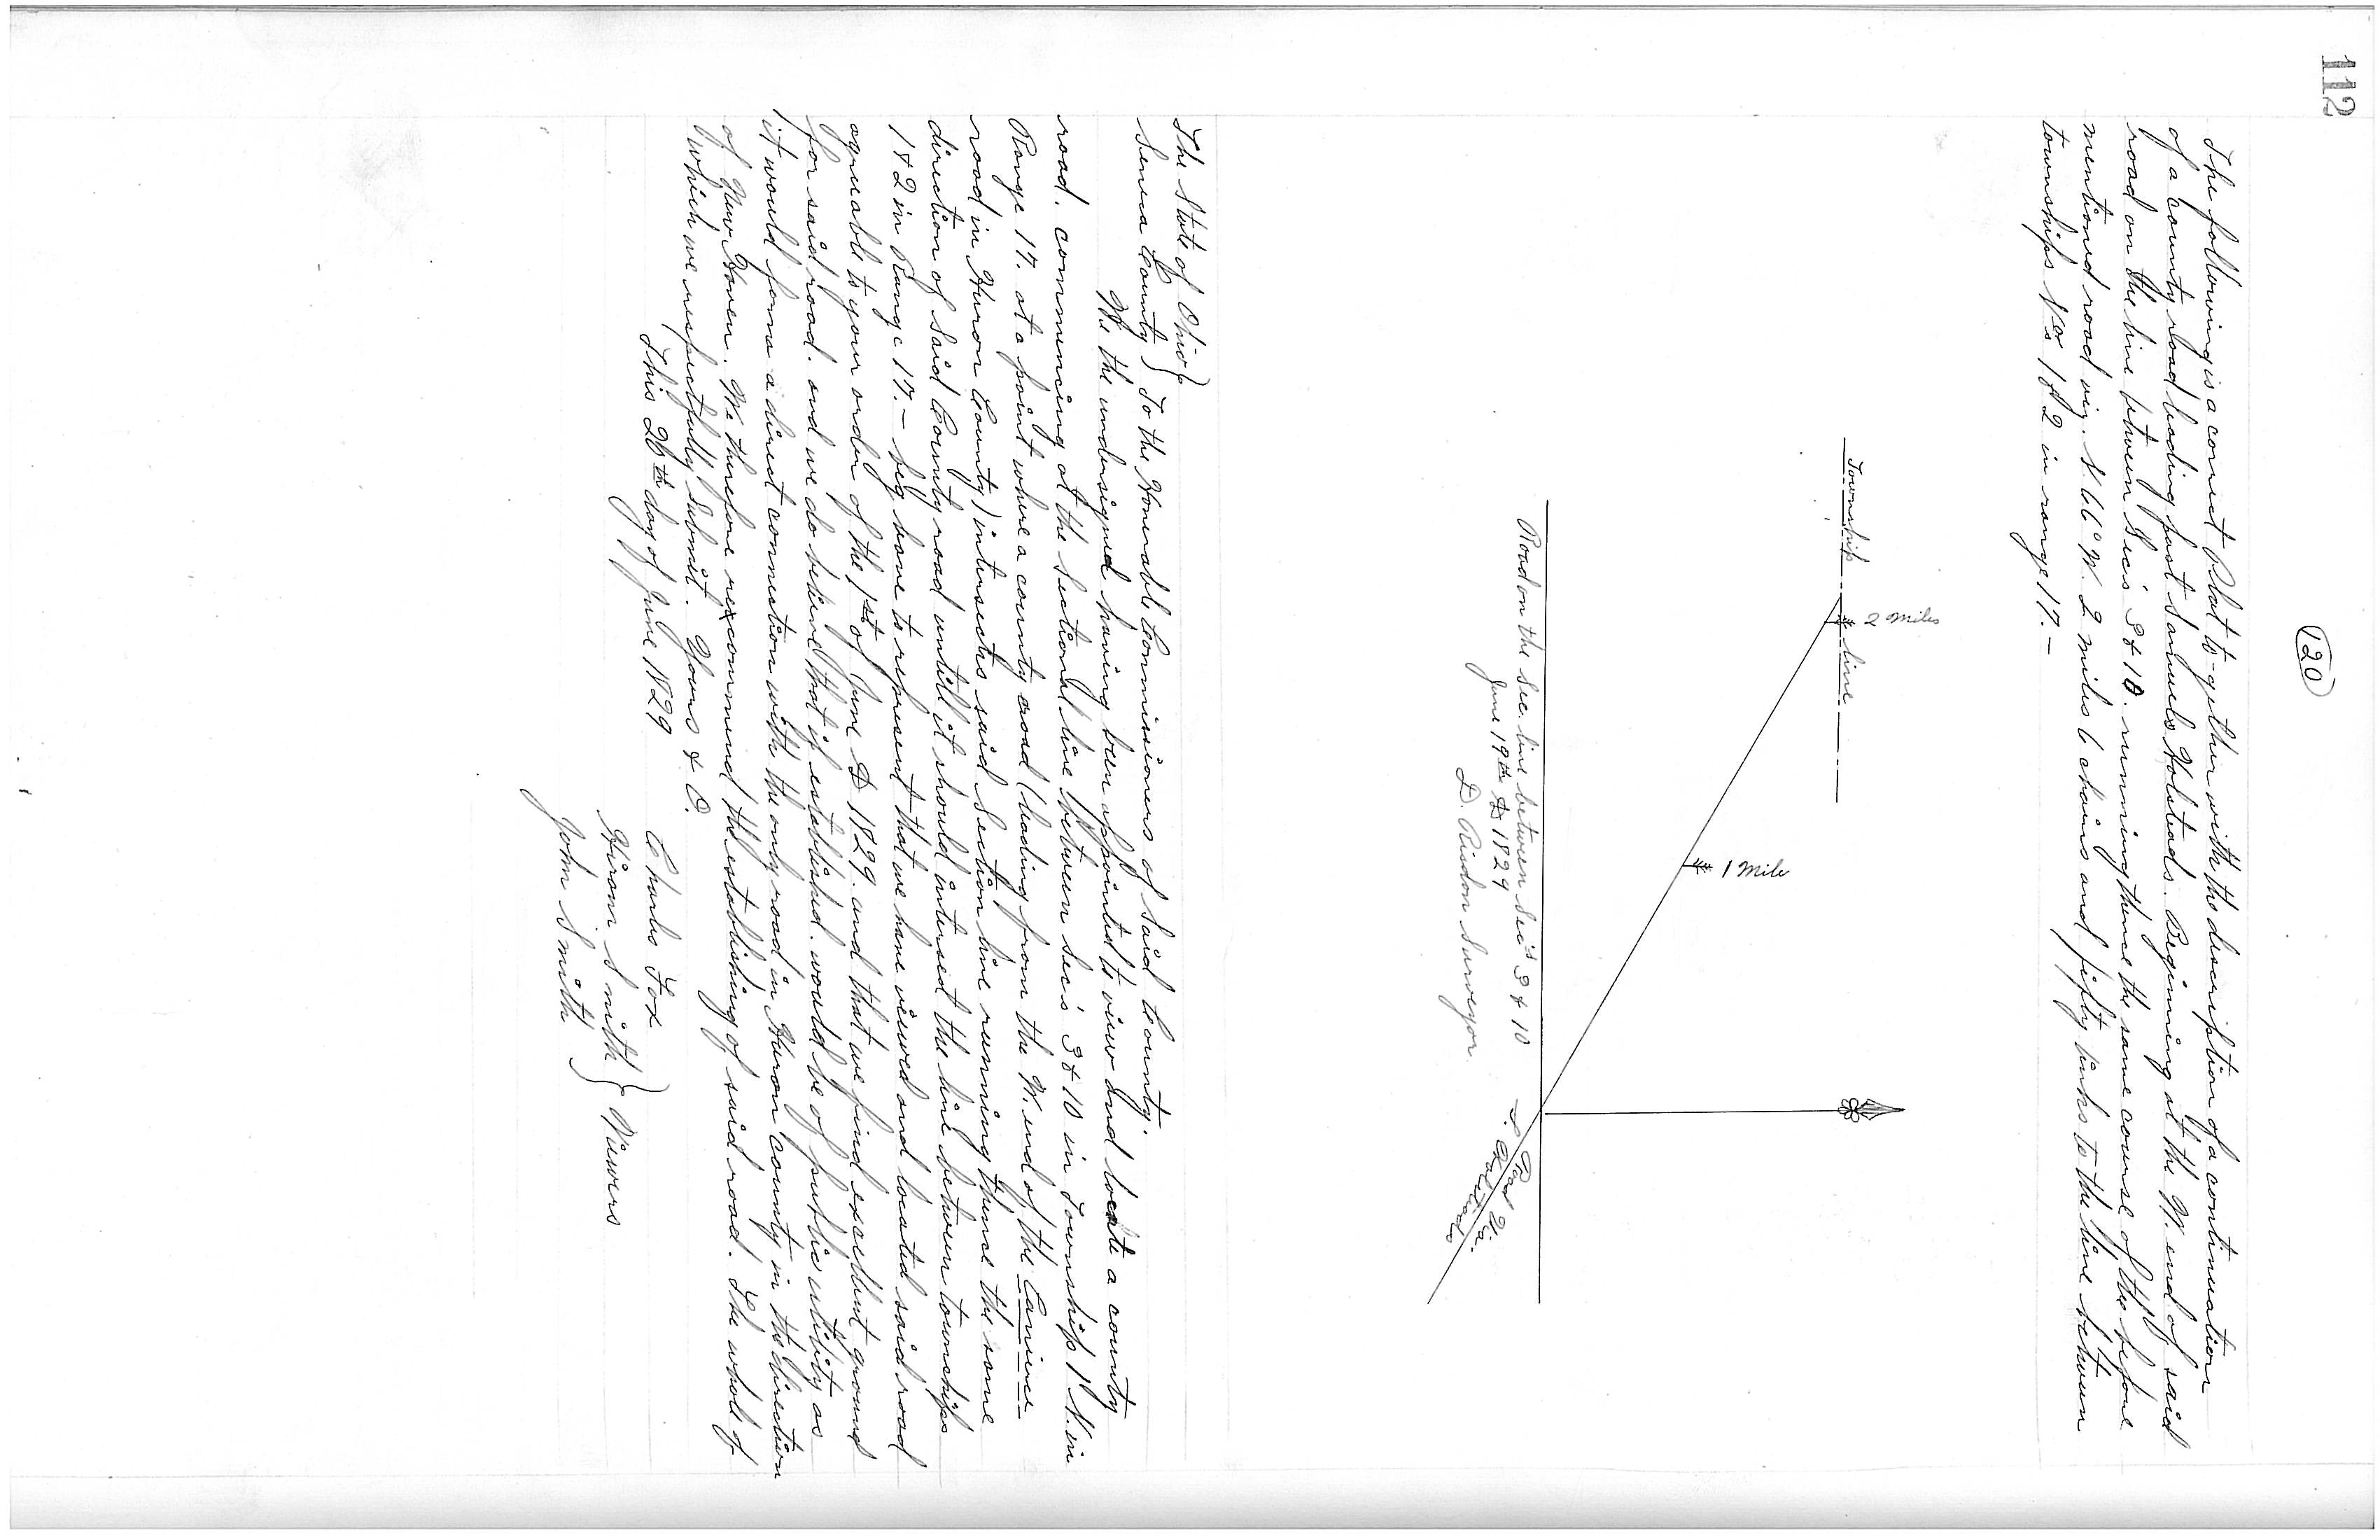 112
(120)
The following is a correct Plat to-gether with the description of a continuation
of a county road leading past Samuels Holsteads. Beginning at the W. end of said
road on the line between Sec's 3 & 10. running thence the same course of the before
mentioned road viz. N 66° W. 2 miles 6 chains and fifty links to the line between
townships Nos 1 & 2 in range 17.—
Township line
2 Miles
1 Mile
Road on the Sec. line between Sec's 3 & 10
June 19th AD 1829
D. Risdon Surveyor.
The State of Ohio }
Seneca County } To the Honorable Commissioners of Said County.
We the undersigned having been appointed to view and locate a county
road. commencing at the Sectional line between Sec's 3 & 10 in Township 1 N. in
Range 17. at a point where a county road (leading from the W. end of the
road in Huron County) intersects said Section line running thence the same
direction of Said County road untill it should intersect the line between townships
1 & 2 in Range 17.— beg leave to represent that we have viewed and located said road
agreeable to your order of the 1st of June AD 1829. and that we find excellent ground
for said road. and we do believe that if established. would be of public utility as
it would form a direct connection with the only road in Huron County in the direction
of New Haven. We therefore reccommend the establishing of said road. The whole of
which we respectfully Submit. Yours & C.
This 26th day of June 1829
Charles Fox
Hiram Smith } Viewers
John Smith